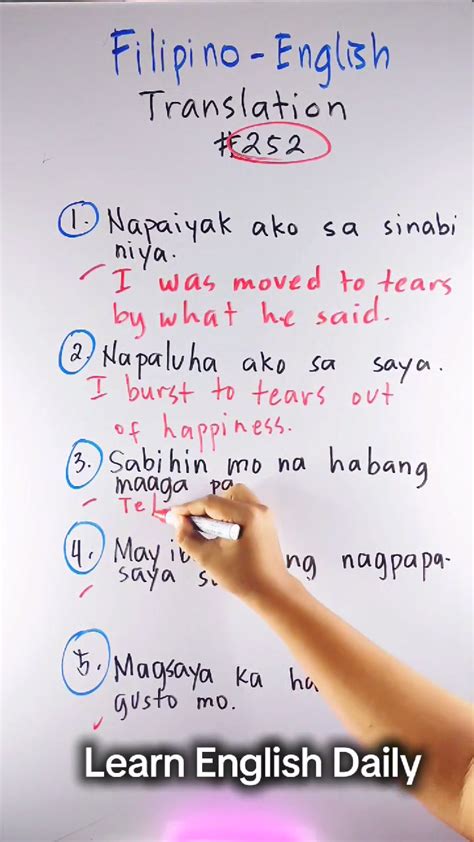 Filipino-English
Translation
#252
1. Napaiyak ako sa sinabi
niya.
I was moved to tears
by what he said.
2. Napaluha ako sa saya.
I burst to tears out
of happiness.
3. Sabihin mo na habang
maaga pa
Tel
4. May i ng nagpapa-
saya s
5. Magsaya ka ha
gusto mo.
Learn English Daily